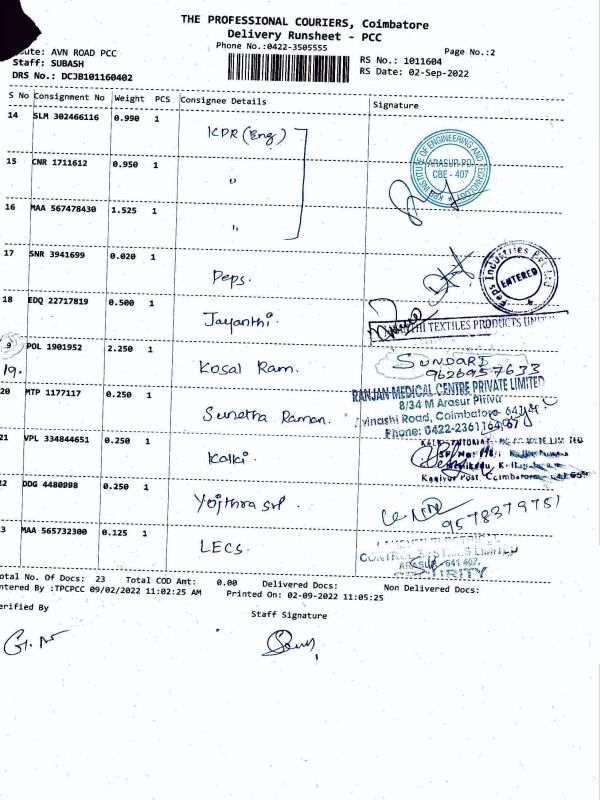 THE PROFESSIONAL COURIERS, Coimbatore
Delivery Runsheet - PCC
Phone No.:0422-3505555
Page No.:2
ute: AVN ROAD PCC
Staff: SUBASH
DRS No.: DCJB101160402
RS No.: 1011604
RS Date: 02-Sep-2022
S No Consignment No Weight PCS Consignee Details Signature
14 SLM 302466116 0.990 1 KPR (Eng)
KPR INSTITUTE OF ENGINEERING AND TECHNOLOGY
ARASUR PO
CBE - 407
15 CNR 1711612 0.950 1 "
16 MAA 567478430 1.525 1 "
17 SNR 3941699 0.020 1 Peps.
Peps Industries Pvt Ltd
ENTERED
18 EDQ 22717819 0.500 1 Jayanthi.
THI TEXTILES PRODUCTS UNIT
9 POL 1901952 2.250 1 Kosal Ram.
19.
SUNDARI
9626957633
20 MTP 1177117 0.250 1 Sunetha Raman.
RANJAN MEDICAL CENTRE PRIVATE LIMITED
8/34 M Arasur Pirivu
vinashi Road, Coimbatore
Phone: 0422-2361164
21 VPL 334844651 0.250 1 Kalki.
Kaniyur Post, Coimbatore
2 DDG 4480998 0.250 1 Yojthra srl.
9578379751
3 MAA 565732300 0.125 1 LECS.
CONTROL SYSTEMS LIMITED
ARASUR - 641 407.
SECURITY
otal No. Of Docs: 23 Total COD Amt: 0.00 Delivered Docs: Non Delivered Docs:
ntered By :TPCPCC 09/02/2022 11:02:25 AM Printed On: 02-09-2022 11:05:25
erified By
Staff Signature